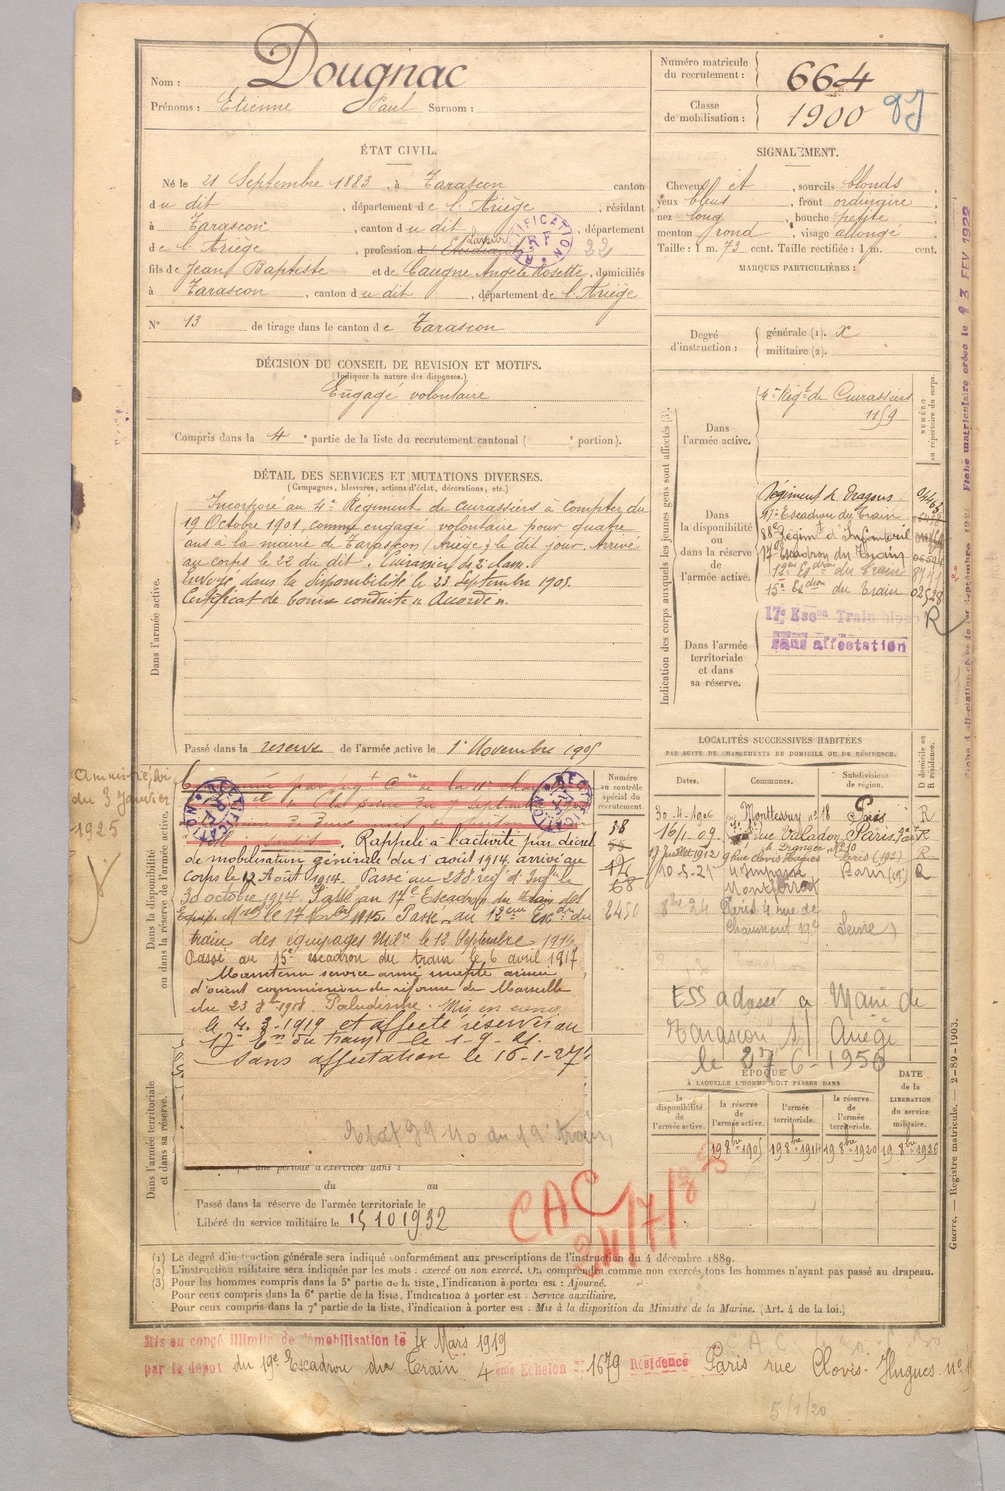 Nom : Dougnac
Prénoms : Etienne Paul Surnom :
Numéro matricule du recrutement : 664
Classe de mobilisation : 1900
ÉTAT CIVIL.
Né le 21 Septembre 1883, à Tarascon canton
du dit, département de l'Ariège, résidant
à Tarascon, canton du dit, département
de l'Ariège, profession d'Etudiant 22
fils de Jean Baptiste et de Caugne Angèle Rosette, domiciliés
à Tarascon, canton du dit, département de l'Ariège
N° 13 de tirage dans le canton de Tarascon
SIGNALEMENT.
Cheveux et, sourcils blonds,
yeux bleus, front ordinaire
nez long, bouche petite
menton rond, visage allongé
Taille : 1 m. 73 cent. Taille rectifiée : 1 m. cent.
MARQUES PARTICULIÈRES :
Degré d'instruction : générale (1). x
militaire (2).
DÉCISION DU CONSEIL DE REVISION ET MOTIFS.
(Indiquer la nature des dispenses.)
Engagé volontaire
Compris dans la 4e partie de la liste du recrutement cantonal ( e portion).
DÉTAIL DES SERVICES ET MUTATIONS DIVERSES.
(Campagnes, blessures, actions d'éclat, décorations, etc.)
Dans l'armée active.
Incorporé au 4e Régiment de cuirassiers à compter du
19 Octobre 1901, comme engagé volontaire pour quatre
ans à la mairie de Tarascon (Ariège) le dit jour. Arrivé
au corps le 22 du dit. Cuirassier de 2e classe.
Envoyé dans la disponibilité le 23 Septembre 1905.
Certificat de bonne conduite "Accordé".
Passé dans la réserve de l'armée active le 1er Novembre 1905
Indication des corps auxquels les jeunes gens sont affectés (3).
Dans l'armée active.
4e Régt de Cuirassiers
1159
NUMÉRO au répertoire du corps.
Dans la disponibilité ou dans la réserve de l'armée active.
Régiment de Dragons
17e Escadron du Train
88e Régimt d'Infanterie
17e Escadron du Train
12e Esdron du Train
15e Esdron du Train 02528
17e Escon Train
sans affectation
R
Dans l'armée territoriale et dans sa réserve.
Amnistié, loi
du 3 Janvier
1925
Dans la disponibilité ou dans la réserve de l'armée active.
RECTIFICATION
Rappelé à l'activité par décret
de mobilisation générale du 1er août 1914. arrivé au
corps le 12 Août 1914. Passé au 288e rég. d'Infie le
30 octobre 1914. Passé au 17e Escadron du train des
Equip. Mres le 17 Nov. 1915. Passé au 12eme Escdn du
train des équipages Milre le 12 Septembre 1916
Passé au 15e escadron du train le 6 avril 1917
Maintenu service armé inapte armée
d'orient commission de réforme de Marseille
du 23 1918 Paludisme. Mis en congé
le 4.3.1919 et affecté réserve au
17e Eon du train le 1-9-21.
Sans affectation le 16-1-27
Numéro au contrôle spécial du recrutement.
38
68
2450
LOCALITÉS SUCCESSIVES HABITÉES
PAR SUITE DE CHANGEMENTS DE DOMICILE OU DE RÉSIDENCE.
Dates. Communes. Subdivisions de région. D domicile ou R résidence.
30-4-1906 rue Monttessuy n° 18 Paris R
16/1-09 rue Valadon Paris R
17 juillet 1912 9 Rue Clovis Hugues Paris (19e) R
10-5-21 4 Impasse Montferrat Paris (19e) R
8bre 24 Paris 4 rue de
Chaumont 19e Seine
ESS adressé à Maire de
Tarascon s/ Ariège
le 27-6-1956
ÉPOQUE À LAQUELLE L'HOMME DOIT PASSER DANS
la disponibilité de l'armée active.
la réserve de l'armée active.
l'armée territoriale.
la réserve de l'armée territoriale.
DATE de la LIBÉRATION du service militaire.
19 8bre 1905 19 8bre 1914 19 8bre 1920 19 8bre 1926
Dans l'armée territoriale et dans sa réserve.
une période d'exercices dans l
du au
Passé dans la réserve de l'armée territoriale le
Libéré du service militaire le 15 10 1932
CAC
(1) Le degré d'instruction générale sera indiqué conformément aux prescriptions de l'instruction du 4 décembre 1889.
(2) L'instruction militaire sera indiquée par les mots : exercé ou non exercé. On comprendra comme non exercés tous les hommes n'ayant pas passé au drapeau.
(3) Pour les hommes compris dans la 5e partie de la liste, l'indication à porter est : Ajourné.
Pour ceux compris dans la 6e partie de la liste, l'indication à porter est : Service auxiliaire.
Pour ceux compris dans la 7e partie de la liste, l'indication à porter est : Mis à la disposition du Ministre de la Marine. (Art. 4 de la loi.)
Mis en congé illimité de démobilisation le 4 Mars 1919
par le dépôt du 19e Escadron du Train 4ème Echelon n° 1679 Résidence Paris rue Clovis-Hugues n° 9
5/1/20
Guerre. — Registre matricule. — 2-89-1903.